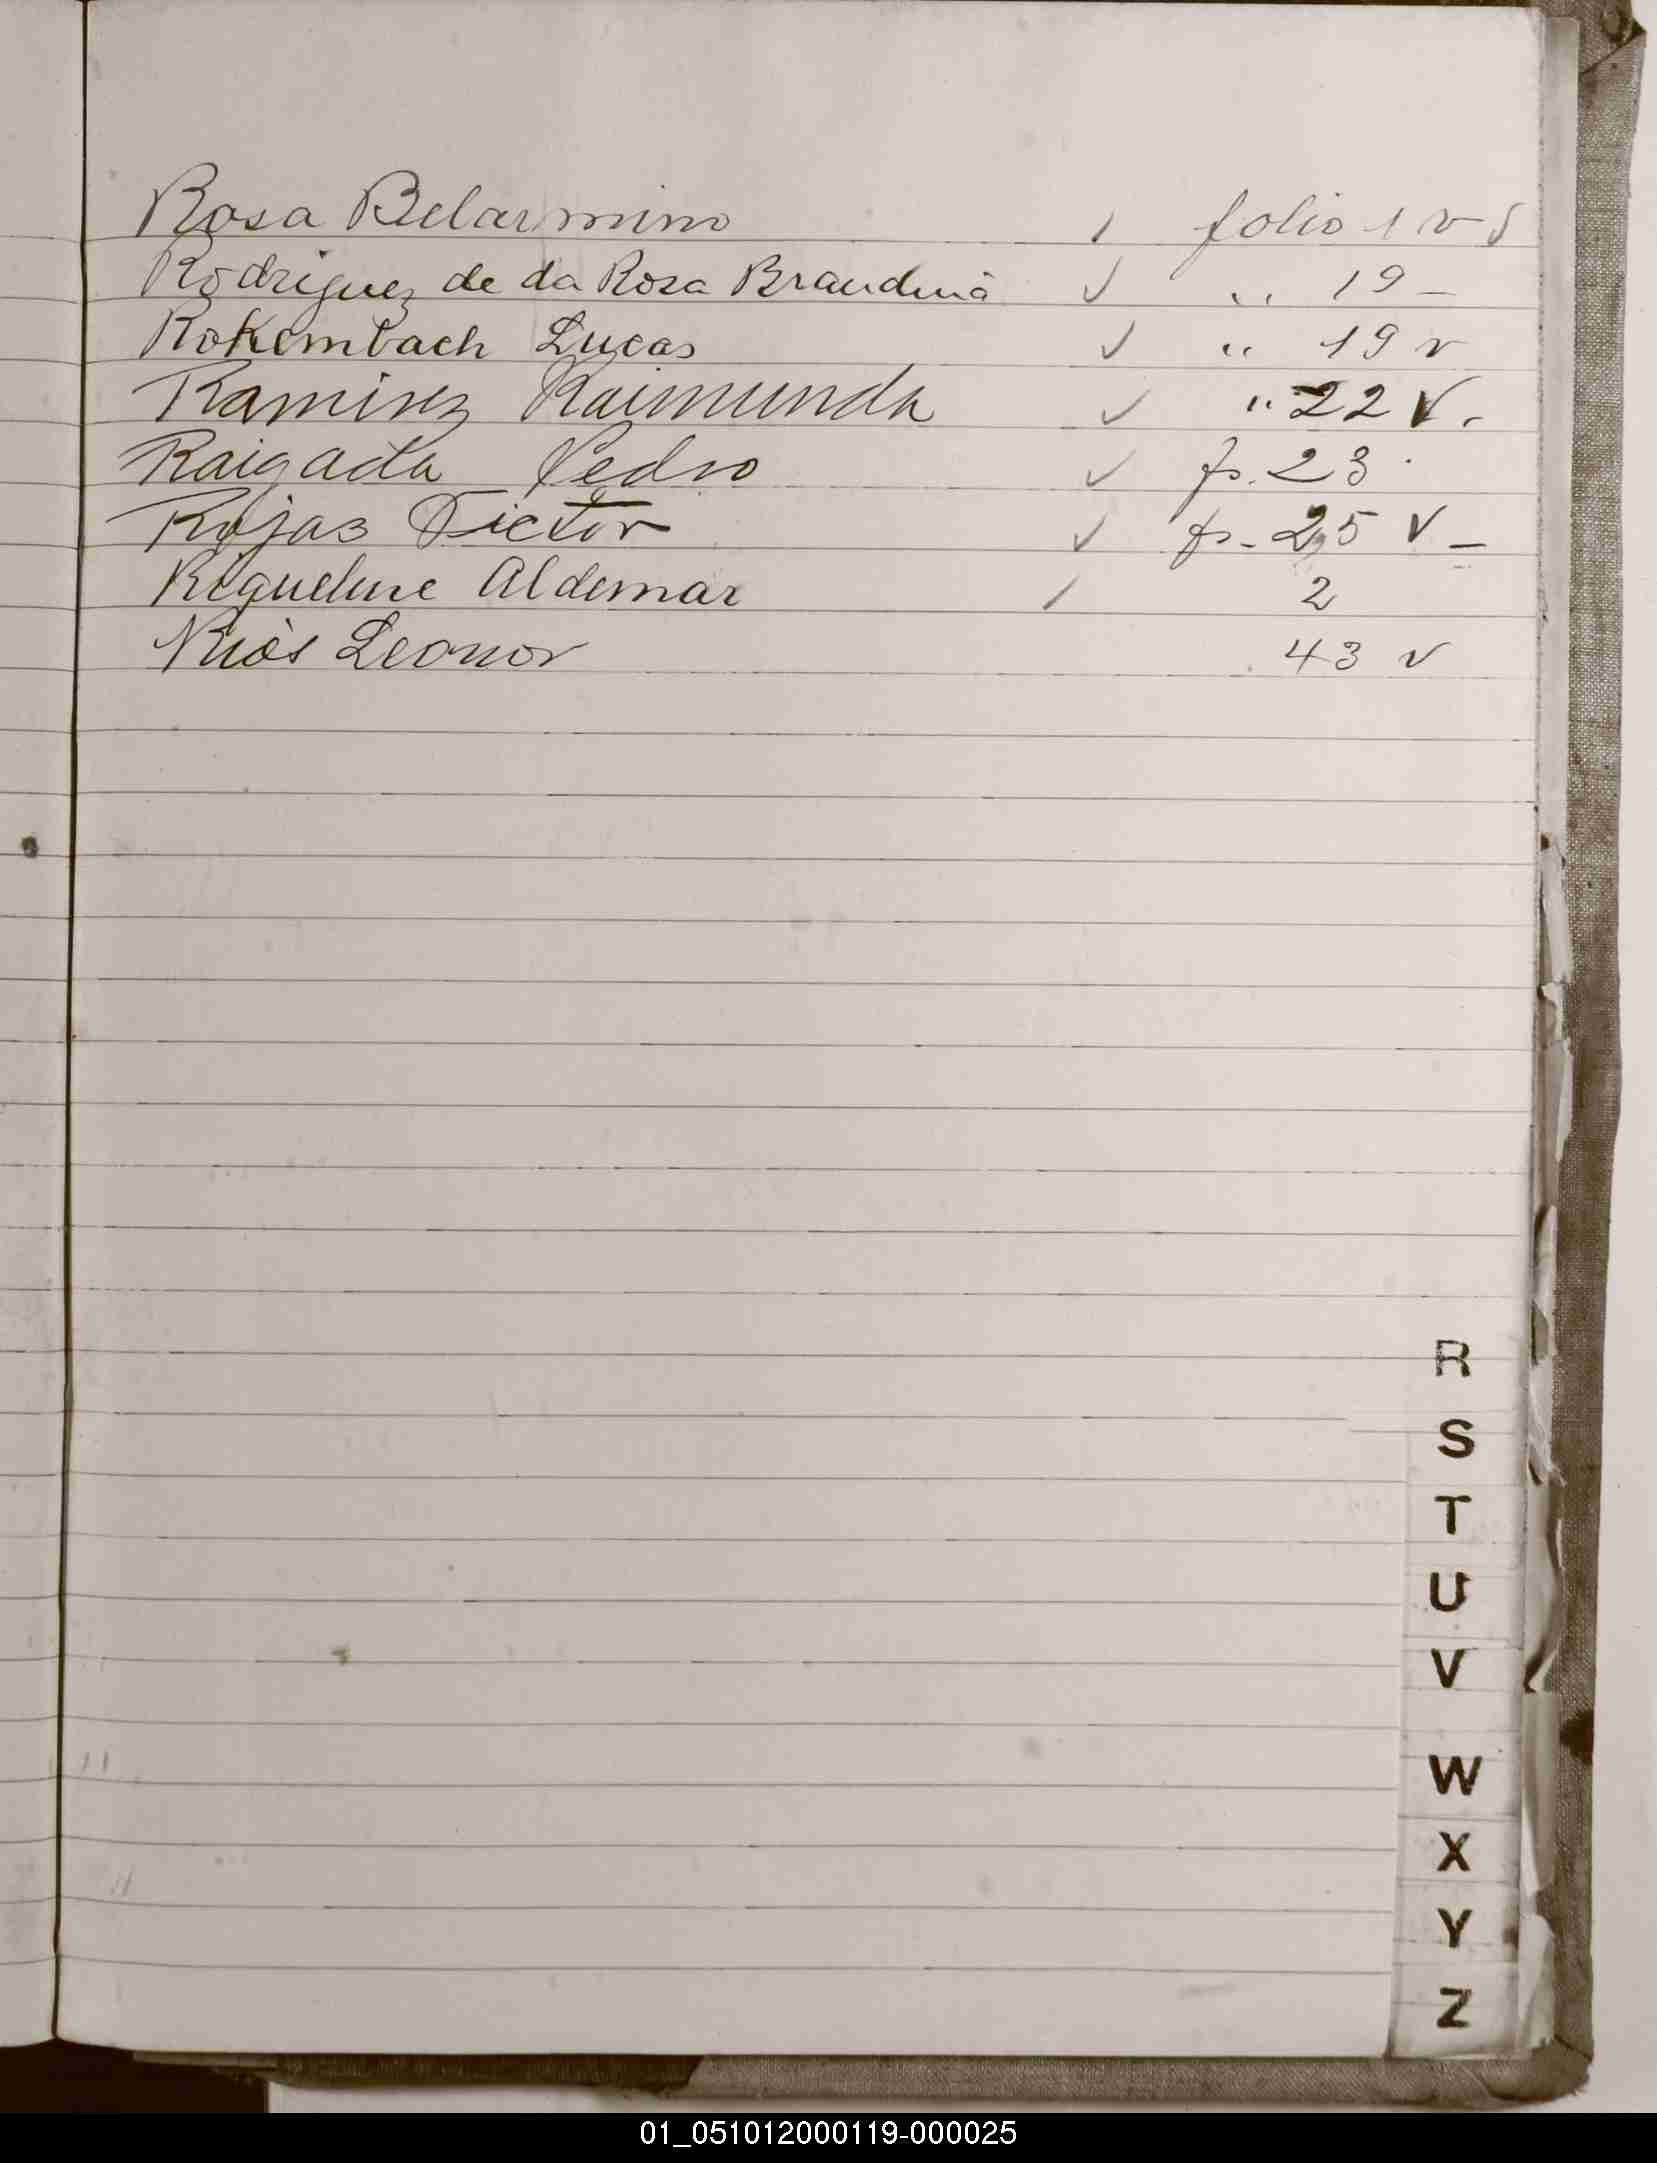 Rosa Belarmino / folio 1 v
Rodriguez de da Rosa Brandina ✓ " 19 -
Rokembach Lucas ✓ " 19 v
Ramirez Raimunda ✓ " 22 v.
Raigada Pedro ✓ fs. 23.
Rojas Victor ✓ fs - 25 v -
Riquelme Aldemar / 2
Rios Leonor 43 v
R
S
T
U
V
W
X
Y
Z
01_051012000119-000025